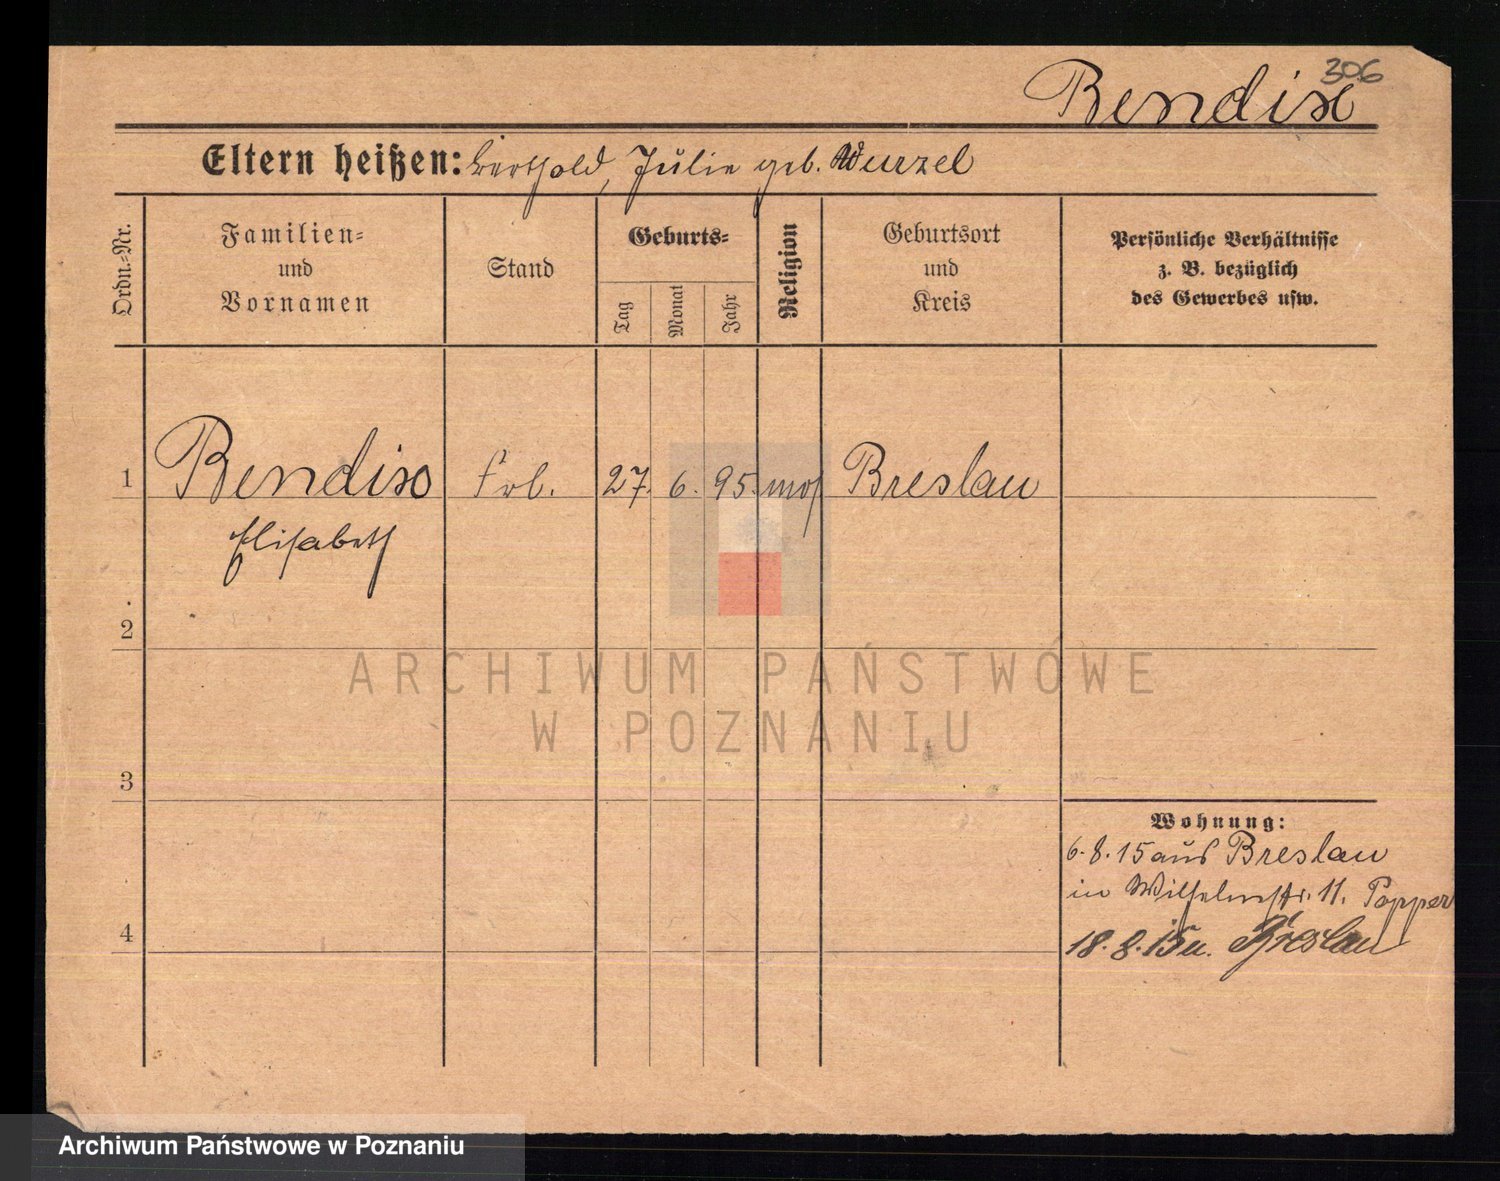 306
Bendix
Eltern heißen: Berthold, Julie geb. Wurzel
Ordn.=Nr.
Familien=
und
Vornamen
Stand
Geburts=
Tag
Monat
Jahr
Religion
Geburtsort
und
Kreis
Persönliche Verhältnisse
z. B. bezüglich
des Gewerbes usw.
1 Bendix Frl. 27. 6. 95. mos Breslau
Elisabeth
2
3
4
Wohnung:
6.8.15 aus Breslau
in Wilhelmstr. 11. Popper
18.8.15 n. Breslau
ARCHIWUM PAŃSTWOWE
W POZNANIU
Archiwum Państwowe w Poznaniu